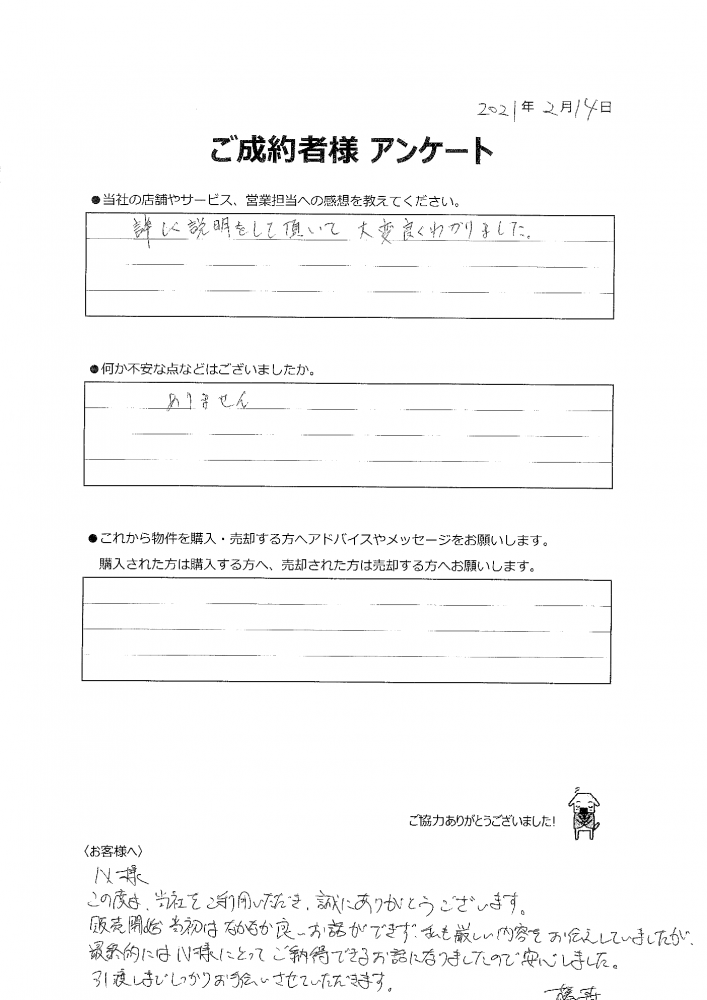 2021年 2月14日
ご成約者様 アンケート
●当社の店舗やサービス、営業担当への感想を教えてください。
詳しく説明をして頂いて 大変良くわかりました。
●何か不安な点などはございましたか。
ありません
●これから物件を購入・売却する方へアドバイスやメッセージをお願いします。
購入された方は購入する方へ、売却された方は売却する方へお願いします。
ご協力ありがとうございました!
〈お客様へ〉
N様
この度は、当社をご利用いただき、誠にありがとうございます。
販売開始当初はなかなか良いお話ができず、私も厳しい内容をお伝えしていましたが、
最終的にはN様にとってご納得できるお話になりましたので安心しました。
引渡しまでしっかりお手伝いさせていただきます。